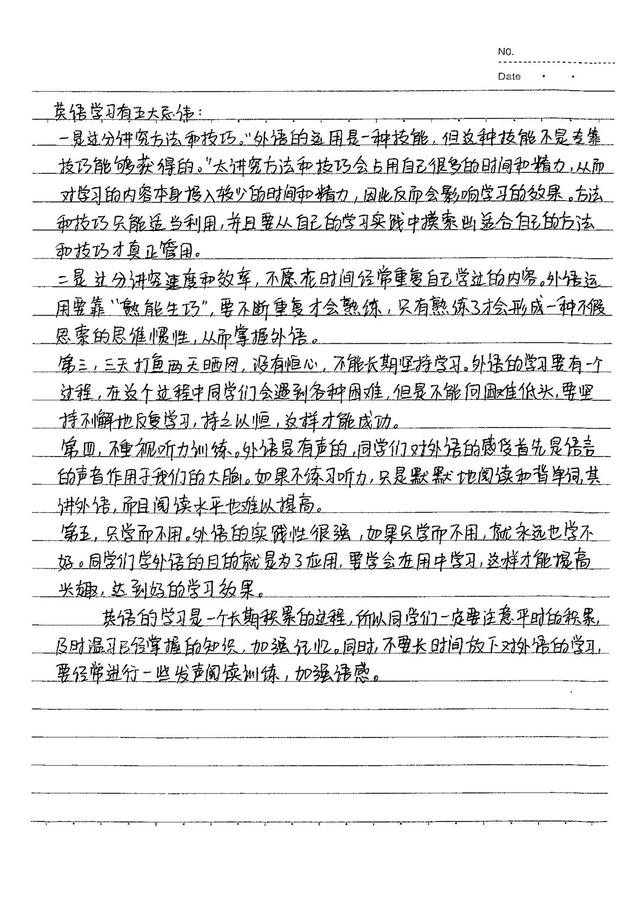 NO.
Date
英语学习有五大忌讳：
一是过分讲究方法和技巧。"外语的运用是一种技能，但这种技能不是专靠
技巧能够获得的。"太讲究方法和技巧会占用自己很多的时间和精力，从而
对学习的内容本身投入较少的时间和精力，因此反而会影响学习的效果。方法
和技巧只能适当利用，并且要从自己的学习实践中摸索出适合自己的方法
和技巧才真正管用。
二是过分讲究速度和效率，不愿花时间经常重复自己学过的内容。外语运
用要靠"熟能生巧"，要不断重复才会熟练，只有熟练了才会形成一种不假
思索的思维惯性，从而掌握外语。
第三，三天打鱼两天晒网，没有恒心，不能长期坚持学习。外语的学习要有一个
过程，在这个过程中同学们会遇到各种困难，但是不能向困难低头，要坚
持不懈地反复学习，持之以恒，这样才能成功。
第四，不重视听力训练。外语是有声的，同学们对外语的感受首先是语言
的声音作用于我们的大脑。如果不练习听力，只是默默地阅读和背单词，其
讲外语，而且阅读水平也难以提高。
第五，只学而不用。外语的实践性很强，如果只学而不用，就永远也学不
好。同学们学外语的目的就是为了应用，要学会在用中学习，这样才能提高
兴趣，达到好的学习效果。
英语的学习是一个长期积累的过程，所以同学们一定要注意平时的积累，
及时温习已经掌握的知识，加强记忆。同时，不要长时间放下对外语的学习，
要经常进行一些发声阅读训练，加强语感。